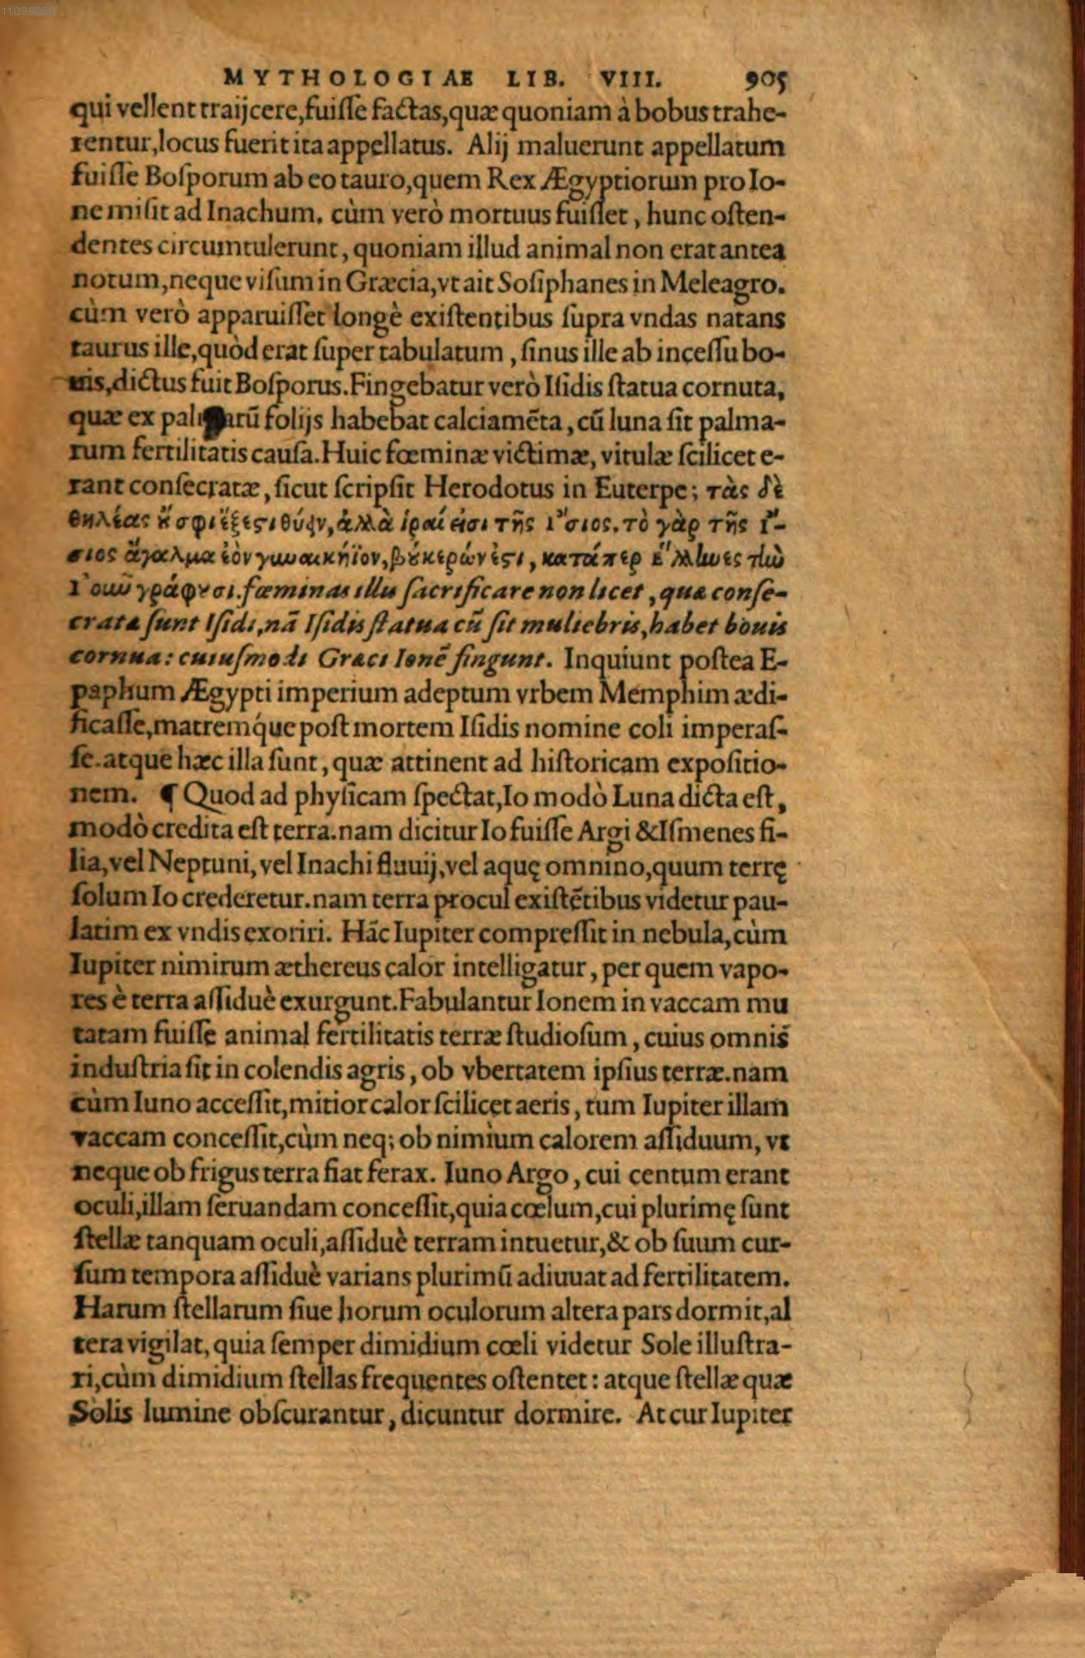 MYTHOLOGIAE LIB. VIII. 905
qui vellent traijcere,fuiſſe factas,quæ quoniam à bobus trahe-
rentur,locus fuerit ita appellatus. Alij maluerunt appellatum
fuiſſe Boſporum ab eo tauro,quem Rex Ægyptiorum pro Io-
ne miſit ad Inachum. cùm verò mortuus fuiſſet, hunc oſten-
dentes circumtulerunt, quoniam illud animal non erat antea
notum,neque viſum in Græcia,vt ait Soſiphanes in Meleagro.
cùm verò apparuiſſet longè exiſtentibus ſupra vndas natans
taurus ille,quòd erat ſuper tabulatum, ſinus ille ab inceſſu bo-
uis,dictus fuit Boſporus.Fingebatur verò Iſidis ſtatua cornuta,
quæ ex folijs habebat calciamẽta, cũ luna ſit palma-
rum fertilitatis cauſa.Huic fœminæ victimæ, vitulæ ſcilicet e-
rant conſecratæ, ſicut scripſit Herodotus in Euterpe; τὰς δὲ
θηλέας ȣ̓́ σφι ἔξεςι θύειν, ἀλλὰ ἱραί εἰσι τῆς Ἴσιος. τὸ γὰρ τῆς Ἴ-
σιος ἄγαλμα ἐὸν γυναικήϊον, βȣ́κερών ἐςι, κατάπερ Ἕλληνες τὴν
Ἰοῦν γράφȣσι. fœminas illis ſacrificare non licet, quæ conſe-
cratæ ſunt Iſidi,nã Iſidis ſtatua cũ ſit muliebris,habet bouis
cornua: cuiuſmodi Græci Ionẽ fingunt. Inquiunt poſtea E-
paphum Ægypti imperium adeptum vrbem Memphim ædi-
ficaſſe,matremq́ue poſt mortem Iſidis nomine coli imperaſ-
ſe.atque hæc illa ſunt, quæ attinent ad hiſtoricam expoſitio-
nem. ¶ Quod ad phyſicam ſpectat,Io modò Luna dicta eſt,
modò credita eſt terra.nam dicitur Io fuiſſe Argi & Iſmenes fi-
lia,vel Neptuni, vel Inachi fluuij,vel aquę omnino,quum terrę
ſolum Io crederetur.nam terra procul exiſtẽtibus videtur pau-
latim ex vndis exoriri. Hãc Iupiter compreſſit in nebula,cùm
Iupiter nimirum æthereus calor intelligatur, per quem vapo-
res è terra aſſiduè exurgunt.Fabulantur Ionem in vaccam mu
tatam fuiſſe animal fertilitatis terræ ſtudioſum, cuius omnis
induſtria ſit in colendis agris, ob vbertatem ipſius terræ.nam
cùm Iuno acceſſit,mitior calor ſcilicet aeris, tum Iupiter illam
vaccam conceſſit,cùm neq; ob nimium calorem aſſiduum, vt
neque ob frigus terra fiat ferax. Iuno Argo, cui centum erant
oculi,illam ſeruandam conceſſit,quia cœlum,cui plurimę ſunt
ſtellæ tanquam oculi,aſſiduè terram intuetur,& ob ſuum cur-
ſum tempora aſſiduè varians plurimũ adiuuat ad fertilitatem.
Harum ſtellarum ſiue horum oculorum altera pars dormit,al
tera vigilat, quia ſemper dimidium cœli videtur Sole illuſtra-
ri,cùm dimidium ſtellas frequentes oſtentet: atque ſtellæ quæ
Solis lumine obſcurantur, dicuntur dormire. At cur Iupiter